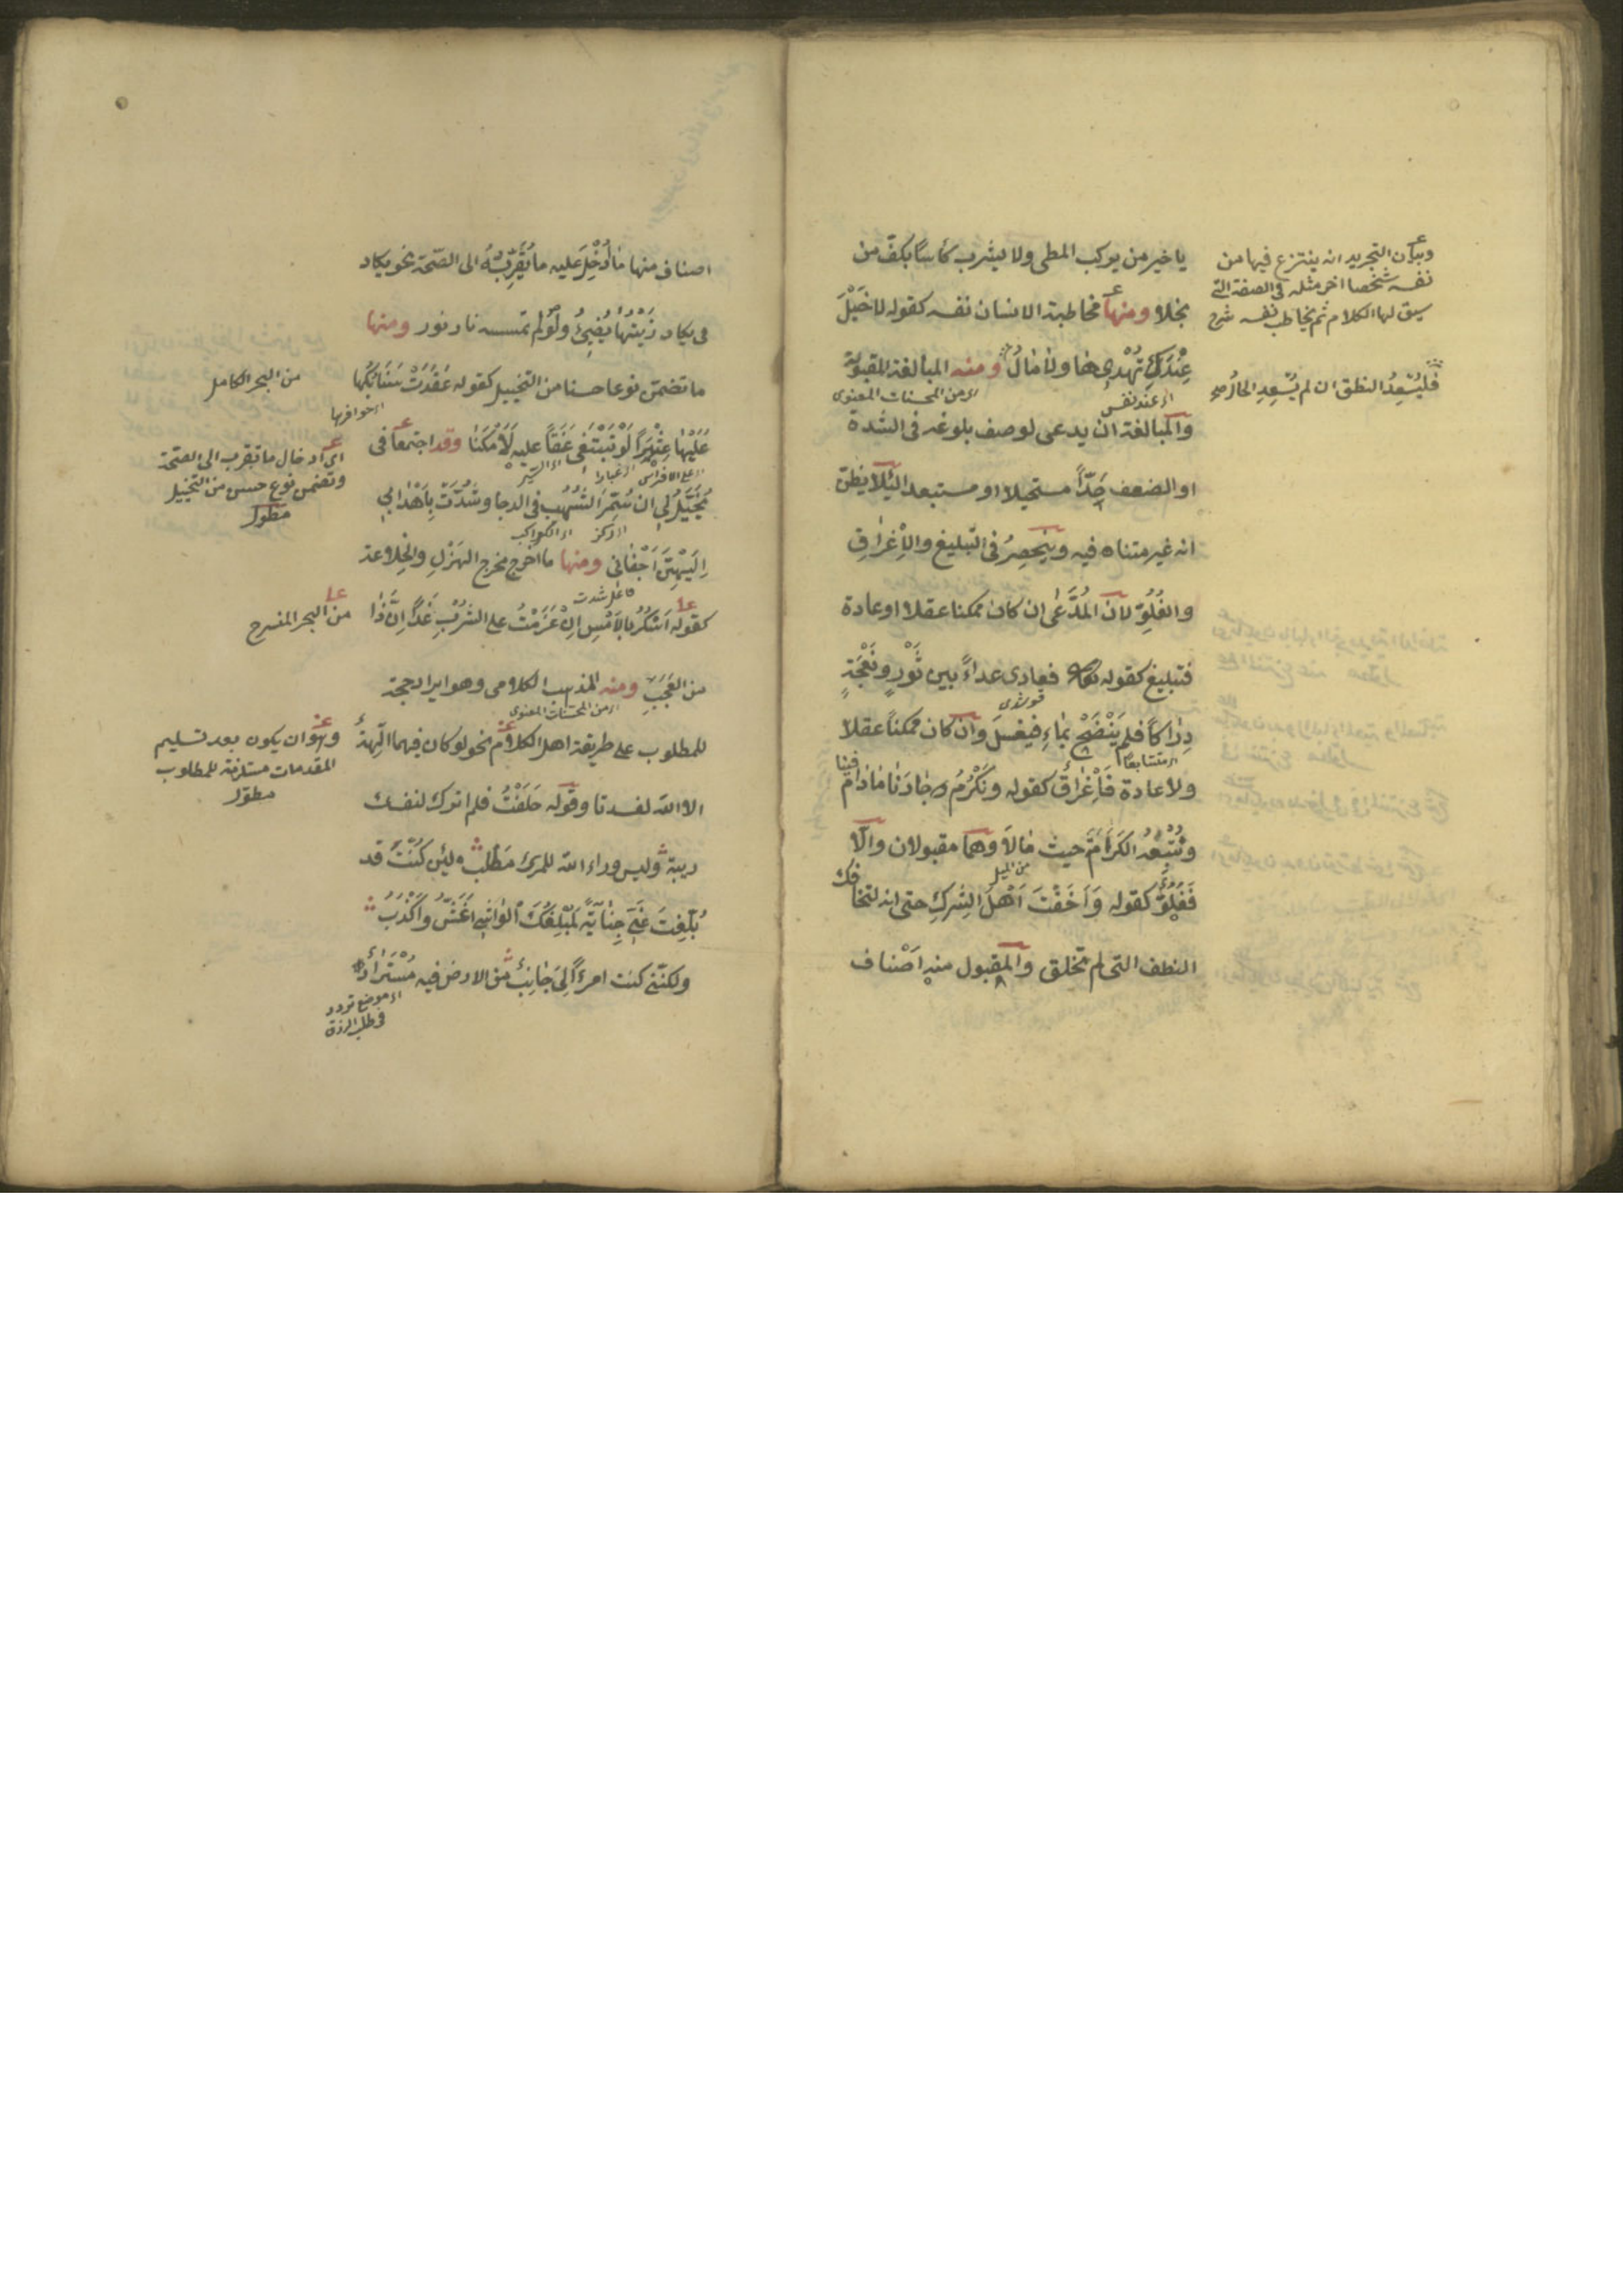 يا خير من يركب المطى ولا يشرب كأسًا بكفّ من
بخلا ومنها مخاطبة الانسان نفسه كقوله لا خَيْلَ
عِنْدَكَ تُهْدِيهَا ولا مَالُ ومنه المبالغة المقبولة
اى عند نفس
اى من المحسنات المعنوى
والمبالغة ان يدعى لوصف بلوغه فى الشدة
او الضعف حَدّاً مستحيلا او مستبعدا لئلا يظنّ
انه غير متناه فيه وينحصِرُ فى التّبليغ والإغراقِ
والغُلُوّ لان المُدَّعٰى ان كان ممكنا عقلا او عادة
فتبليغ كقوله فعادى عداءً بين ثَوْرٍ ونَعْجَةٍ
دِرَاكًا فلم يَنْضَحْ بمَاءٍ فيغسَل وان كان ممكنًا عقلا
اى متتابعًا
لا عادة فَاِغْرَاق كقوله ونُكْرِمُ جَارَنَا مَا دَامَ فينا
ونُتْبِعُهُ الكَرَامَةَ حيث مَالَا وهما مقبولان والّا
فَغُلُوٌّ كقوله وَاَخَفْتَ اَهْلَ الشِّركِ حتى انه لتخافك
النطف التى لم تخلق والمقبول منه اَصْناف
وبيان التجريد انه ينتزع فيها من
نفسه شخصا اخر مثله فى الصفة التى
سيق لها الكلام ثم يخاطب نفسه شرح
فليُسْعِدُ النطق ان لم يُسْعِدِ الحالُ صح
اصناف منها مَا اُدْخِلَ عليه ما يُقَرِّبُهُ الى الصّحّة نحو يكاد
فى يكاد زَيْتُهَا يُضِيءُ ولَوْلم تمسسه نار نور ومنها
ما تضمّن نوعا حسنا من التخييل كقوله عَقَدَتْ سَنَابِكُهَا
اى حوافرها
عَلَيْهَا عِثْيَرًا لَوْ تَبْتَغِى عَنَقًا عليه لَأَمْكَنَا وقد اجتمعا فى
اى غبارا
اى السير
يُخَيَّلُ لى ان سُمِّرَ الشُّهُب فى الدجا وشُدَّتْ بِاَهْدَابى
اى الكواكب
اِلَيْهِنَّ اَجْفَانى ومنها ما اخرج مخرج الهَزْلِ والخِلاعة
فاعل شدت
كقوله اَسْكَرُ بالاَمْسِ اِنْ عَزَمْتُ على الشُّرْبِ غَدًا اِنَّ ذَا
من العَجَبِ ومنه المذهب الكلامى وهو ايراد حجّة
اى من المحسنات المعنوى
للمطلوب على طريقة اهل الكلام نحو لو كان فيهما الِهَةٌ
الا الله لفسدتا وقوله حَلَفْتُ فلم اترك لنفسك
ريبة وليس وراء الله للمرء مَطْلَب لئِن كُنْتَ قد
بُلِّغْتَ عَنِّى جِنَايَةً لَمُبْلِغُكَ الوَاشِى اَغَشُّ واَكْذَبُ
ولكنّنى كنت امرءًا لِىَ جَانِبٌ من الارض فيه مُسْتَرَادٌ
اى موضع تردد
فى طلب الرزق
من البحر الكامل
اى ادخال ما تقرب الى الصحة
وتضمن نوع حسن من التخييل
مطول
من البحر المنسرح
وهو ان يكون بعد تسليم
المقدمات مستلزمة للمطلوب
مطول